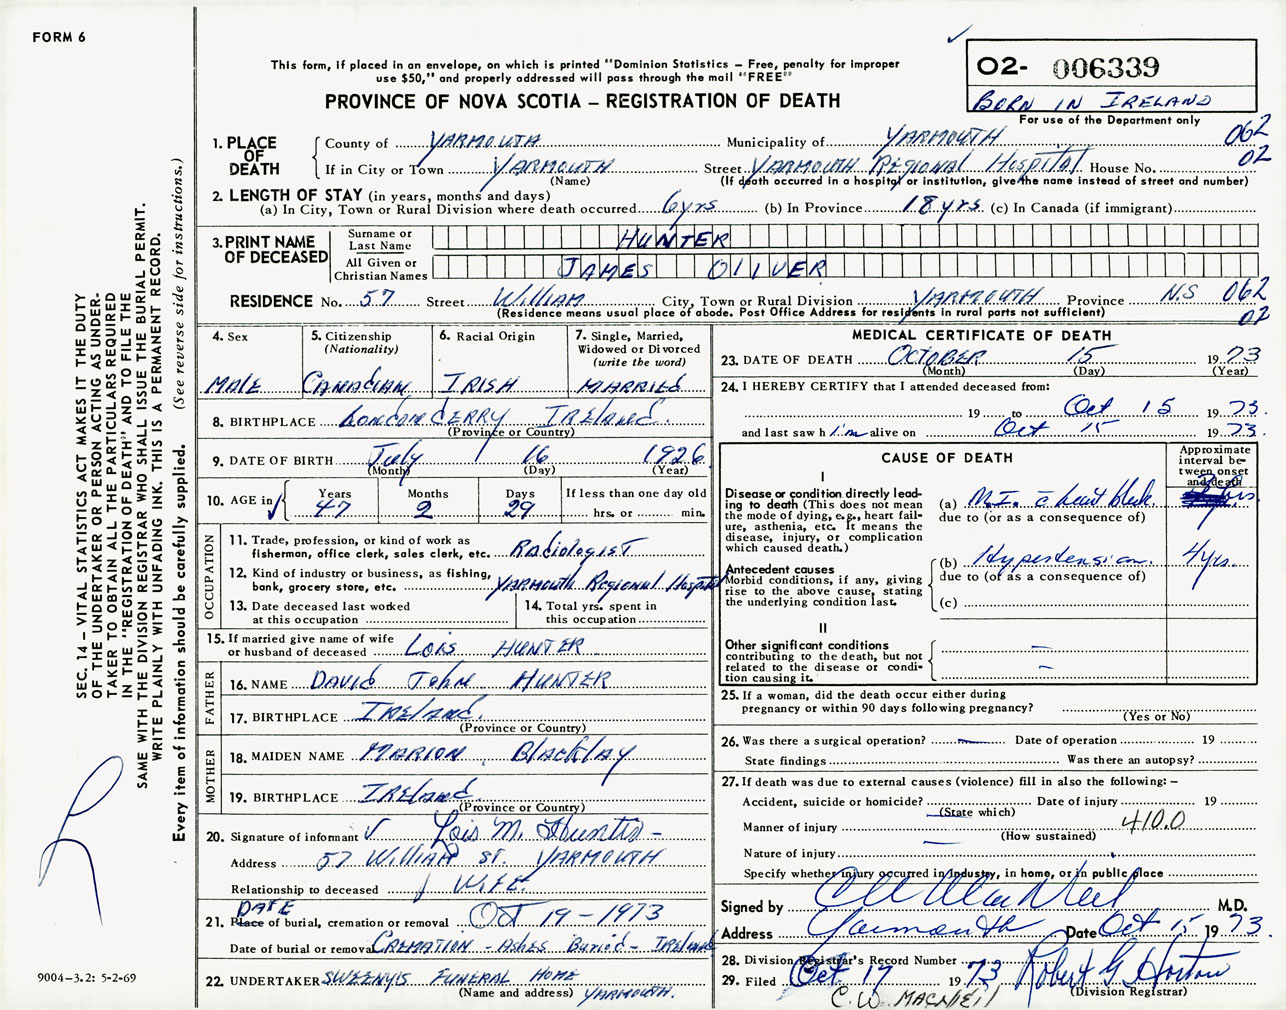 FORM 6
This form, if placed in an envelope, on which is printed "Dominion Statistics – Free, penalty for improper
use $50," and properly addressed will pass through the mail "FREE"
PROVINCE OF NOVA SCOTIA – REGISTRATION OF DEATH
02- 006339
BORN IN IRELAND
For use of the Department only
1. PLACE OF DEATH County of YARMOUTH Municipality of YARMOUTH 062
If in City or Town YARMOUTH Street YARMOUTH REGIONAL HOSPITAL House No. 02
(Name) (If death occurred in a hospital or institution, give the name instead of street and number)
2. LENGTH OF STAY (in years, months and days)
(a) In City, Town or Rural Division where death occurred. 6 yrs (b) In Province 18 yrs (c) In Canada (if immigrant)
3. PRINT NAME OF DECEASED Surname or Last Name HUNTER
All Given or Christian Names JAMES OLIVER
RESIDENCE No. 57 Street William City, Town or Rural Division YARMOUTH Province N.S 062
(Residence means usual place of abode. Post Office Address for residents in rural parts not sufficient) 02
4. Sex MALE
5. Citizenship (Nationality) CANADIAN
6. Racial Origin IRISH
7. Single, Married, Widowed or Divorced (write the word) MARRIED
8. BIRTHPLACE LONDONDERRY IRELAND.
(Province or Country)
9. DATE OF BIRTH July 16 1926
(Month) (Day) (Year)
10. AGE in Years 47 Months 2 Days 29 If less than one day old hrs. or min.
OCCUPATION
11. Trade, profession, or kind of work as fisherman, office clerk, sales clerk, etc. Radiologist
12. Kind of industry or business, as fishing, bank, grocery store, etc. YARMOUTH Regional Hospital
13. Date deceased last worked at this occupation
14. Total yrs. spent in this occupation
15. If married give name of wife or husband of deceased Lois HUNTER
FATHER
16. NAME DAVID JOHN HUNTER
17. BIRTHPLACE IRELAND.
(Province or Country)
MOTHER
18. MAIDEN NAME MARION BlackLAY
19. BIRTHPLACE IRELAND
(Province or Country)
20. Signature of informant Lois M. Hunter
Address 57 William ST. YARMOUTH
Relationship to deceased WIFE.
21. DATE
Place of burial, cremation or removal Oct 19 – 1973
Date of burial or removal CREMATION – Ashes Buried – IRELAND
22. UNDERTAKER SWEENYS FUNERAL HOME
(Name and address) YARMOUTH.
MEDICAL CERTIFICATE OF DEATH
23. DATE OF DEATH OCTOBER 15 1973
(Month) (Day) (Year)
24. I HEREBY CERTIFY that I attended deceased from:
19 to Oct 15 1973.
and last saw h im alive on Oct 15 1973.
CAUSE OF DEATH
Approximate interval between onset and death
I
Disease or condition directly leading to death (This does not mean the mode of dying, e.g., heart failure, asthenia, etc. It means the disease, injury, or complication which caused death.)
(a) M.I. c̄ heart block
due to (or as a consequence of)
Antecedent causes
Morbid conditions, if any, giving rise to the above cause, stating the underlying condition last.
(b) Hypertension. 4 yrs.
due to (or as a consequence of)
(c)
II
Other significant conditions
contributing to the death, but not related to the disease or condition causing it.
25. If a woman, did the death occur either during pregnancy or within 90 days following pregnancy?
(Yes or No)
26. Was there a surgical operation? Date of operation 19
State findings Was there an autopsy?
27. If death was due to external causes (violence) fill in also the following:–
Accident, suicide or homicide? Date of injury 19
(State which)
Manner of injury 410.0
(How sustained)
Nature of injury
Specify whether injury occurred in industry, in home, or in public place
Signed by M.D.
Address Yarmouth Date Oct 15 1973.
28. Division Registrar's Record Number
29. Filed Oct 17 1973 Robert G. Horton
(Division Registrar)
C.W. MACNEIL
SEC. 14 – VITAL STATISTICS ACT MAKES IT THE DUTY
OF THE UNDERTAKER OR PERSON ACTING AS UNDER-
TAKER TO OBTAIN ALL THE PARTICULARS REQUIRED
IN THE "REGISTRATION OF DEATH" AND TO FILE THE
SAME WITH THE DIVISION REGISTRAR WHO SHALL ISSUE THE BURIAL PERMIT.
WRITE PLAINLY WITH UNFADING INK. THIS IS A PERMANENT RECORD.
Every item of information should be carefully supplied. (See reverse side for instructions.)
9004–3.2: 5-2-69